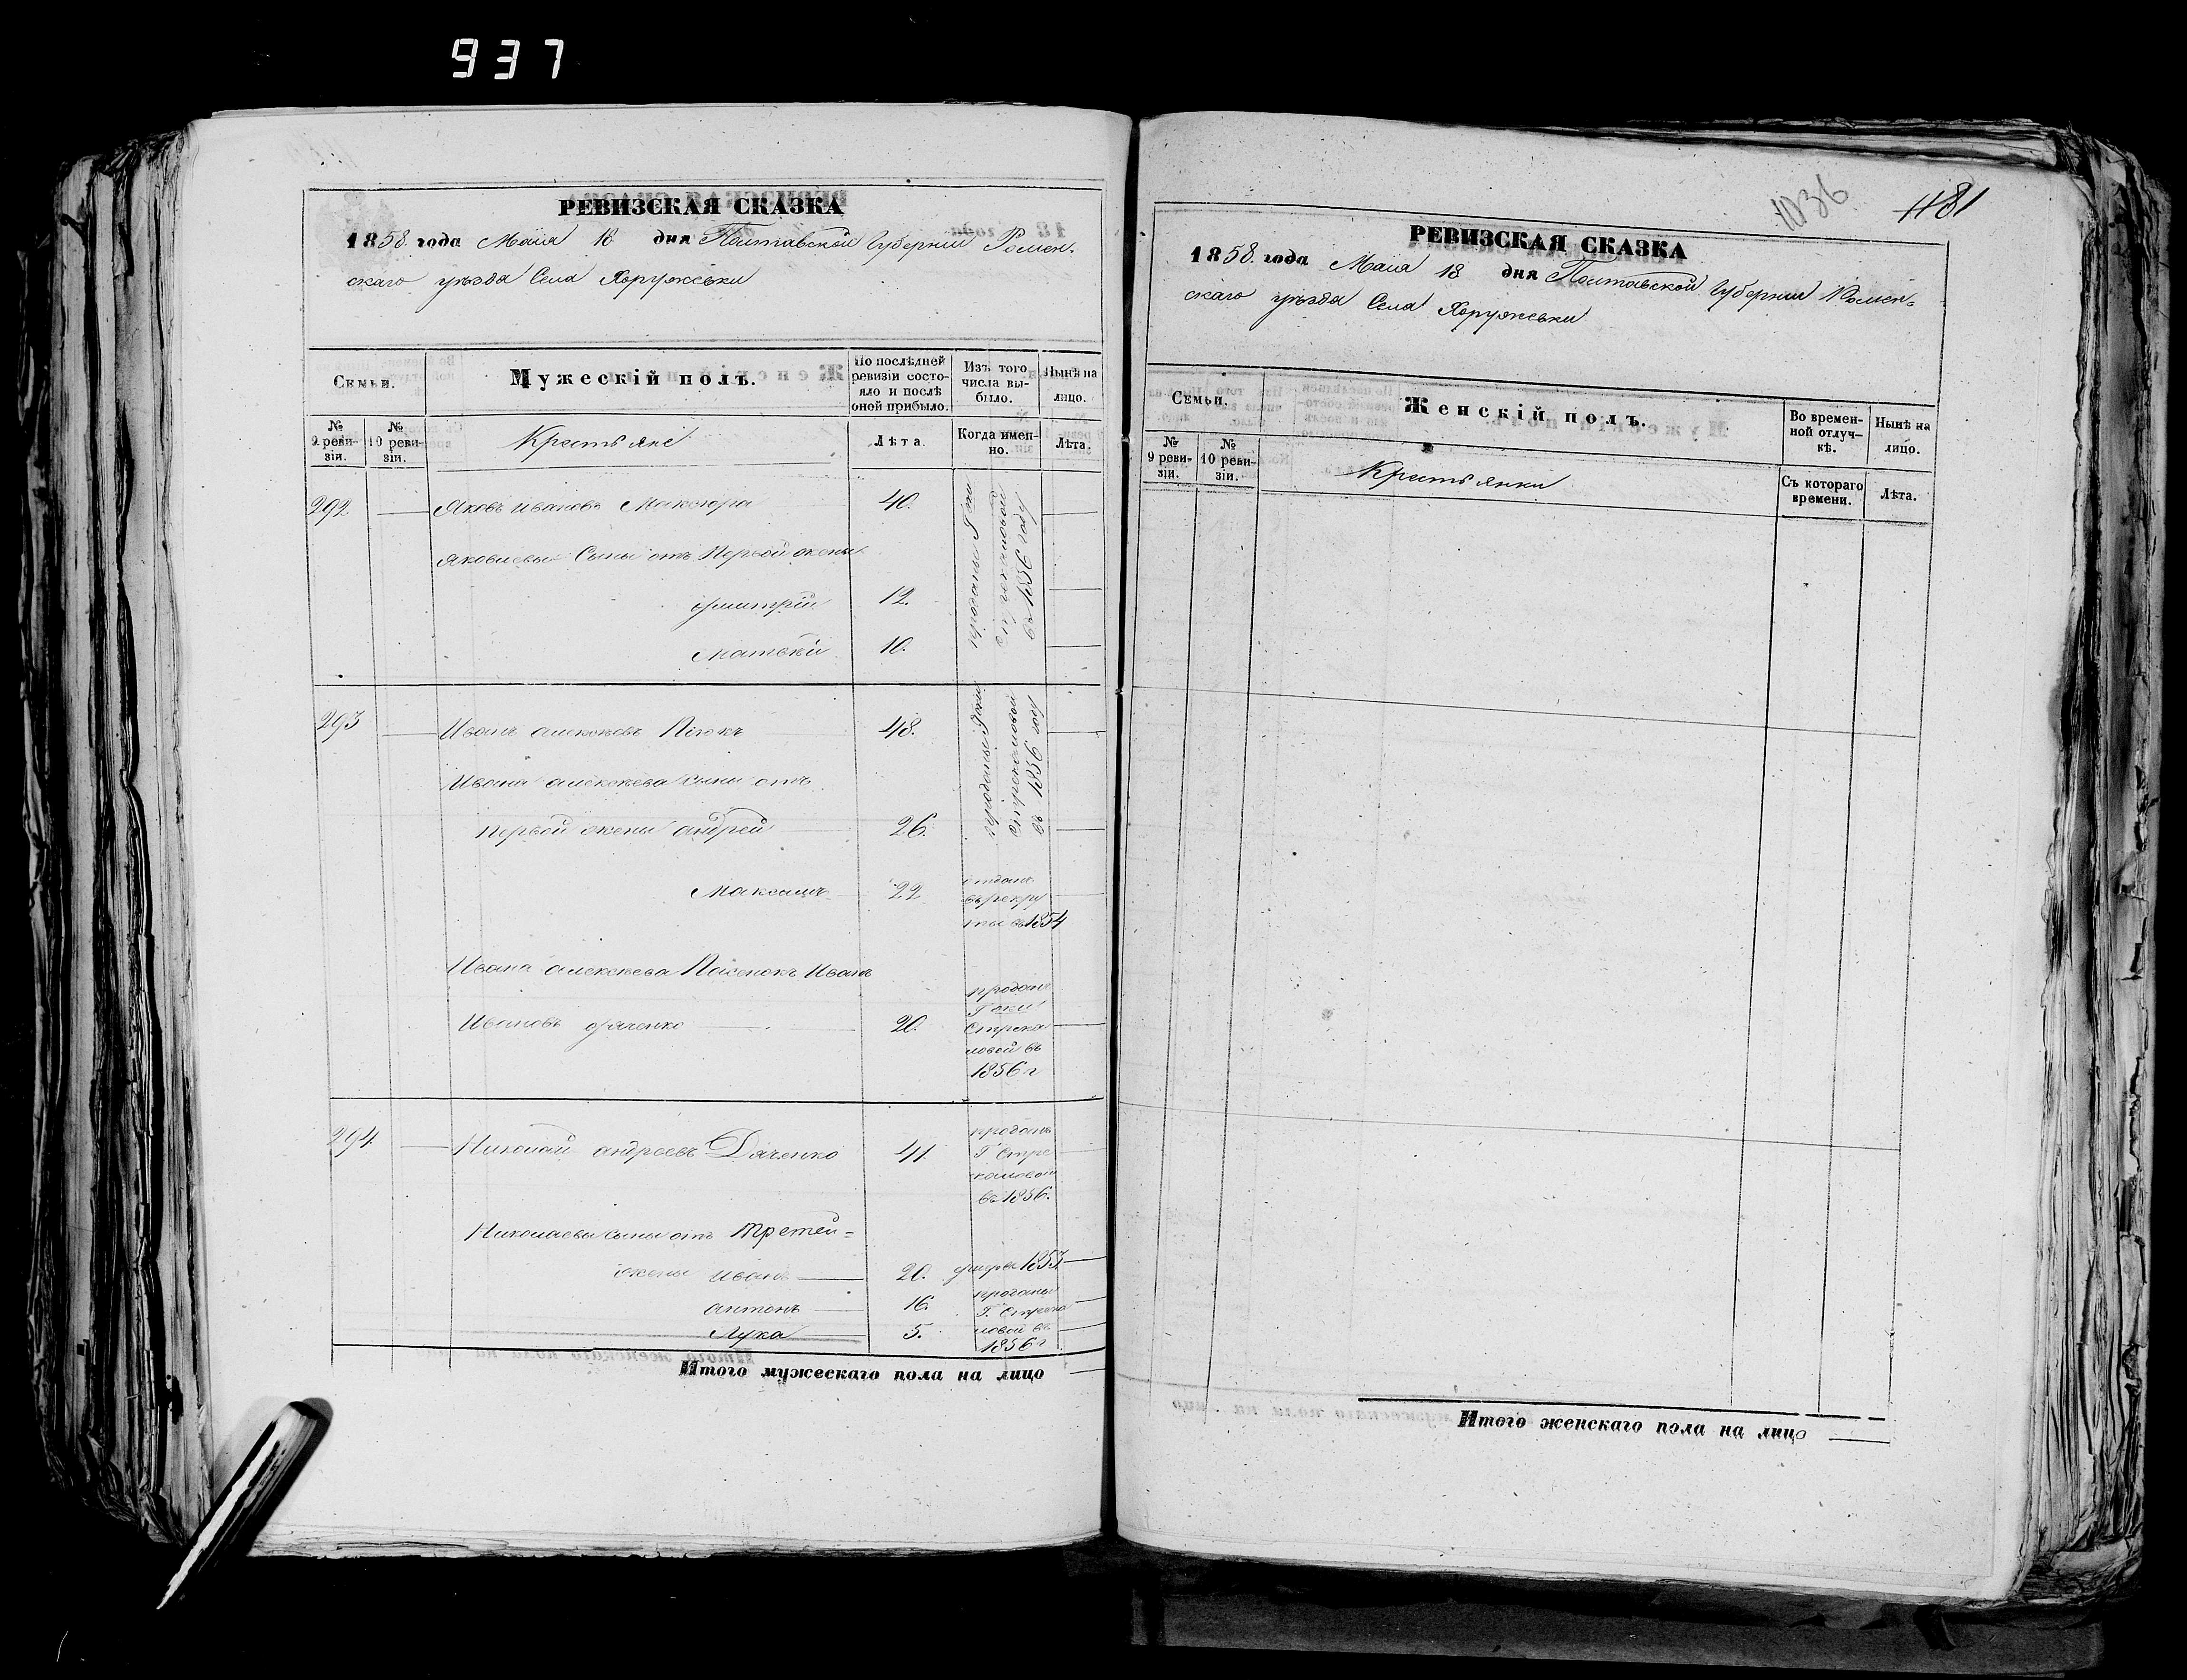 937
РЕВИЗСКАЯ СКАЗКА
1858 года Мая 18 дня Полтавской Губернии Ромен-
скаго уѣзда Села Хоружевки
Семьи.
Мужескій полъ.
По послѣдней ревизіи состояло и послѣ оной прибыло.
Изъ того числа выбыло.
Нынѣ на лицо.
№ 9 ревизіи.
№ 10 ревизіи.
Крестьяне
Лѣта.
Когда именно.
Лѣта.
292 Яковъ Ивановъ 40.
Яковлевы Сыны отъ Первой жены
Дмитрій 12.
Матвѣй 10.
проданы
въ 1856 году
293 Иванъ Алексѣевъ 48.
Ивана Алексѣева Сыны отъ
первой жены Андрей 26.
проданы Г-жи
Стрекаловой
въ 1856 году
Максимъ 22
отданъ
въ рекру
ты въ 1854
Ивана Алексѣева Пасенокъ Иванъ
Ивановъ Дяченко 20.
проданъ
Г-жи
Стрека
ловой въ
1856 г
294 Николай Андреевъ Дяченко 41.
проданъ
Г. Стре
каловой
въ 1856.
Николаевы Сыны отъ Третей=
жены Иванъ 20. умре 1853
Антонъ 16.
Лука 5.
проданы
Г. Стрека
ловой въ
1856 г
Итого мужескаго пола на лицо
1036
1181
РЕВИЗСКАЯ СКАЗКА
1858 года Мая 18 дня Полтавской Губернии Ромен=
скаго уѣзда Села Хоружевки
Семьи.
Женскій полъ.
Во временной отлучкѣ.
Нынѣ на лицо.
№ 9 ревизіи.
№ 10 ревизіи.
Крестьянки
Съ котораго времени.
Лѣта.
Итого женскаго пола на лицо